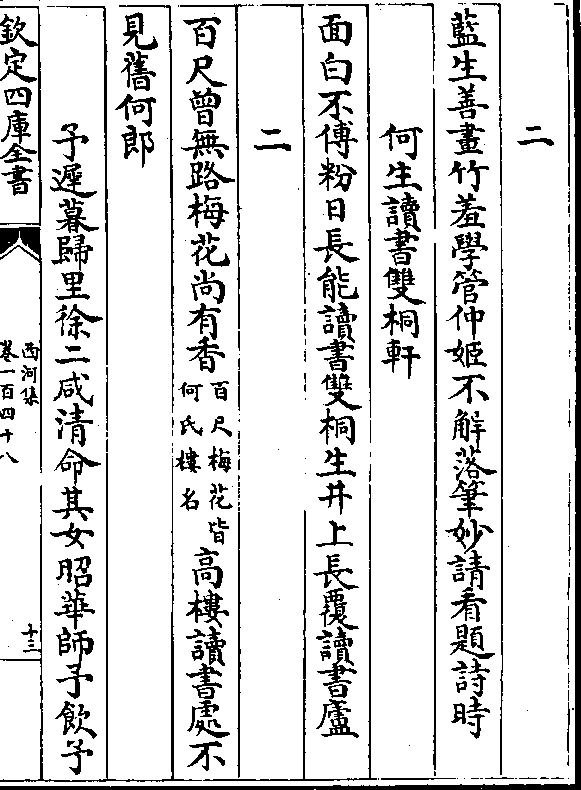 二
藍生善畫竹羞學管仲姬不解落筆妙請看題詩時
何生讀書雙桐軒
面白不傅粉日長能讀書雙桐生井上長覆讀書廬
二
百尺曾無路梅花尚有香百尺梅花皆何氏樓名高樓讀書處不
見舊何郎
予遲暮歸里徐二咸清命其女昭華師予飲予
欽定四庫全書
西河集
卷一百四十八
十三